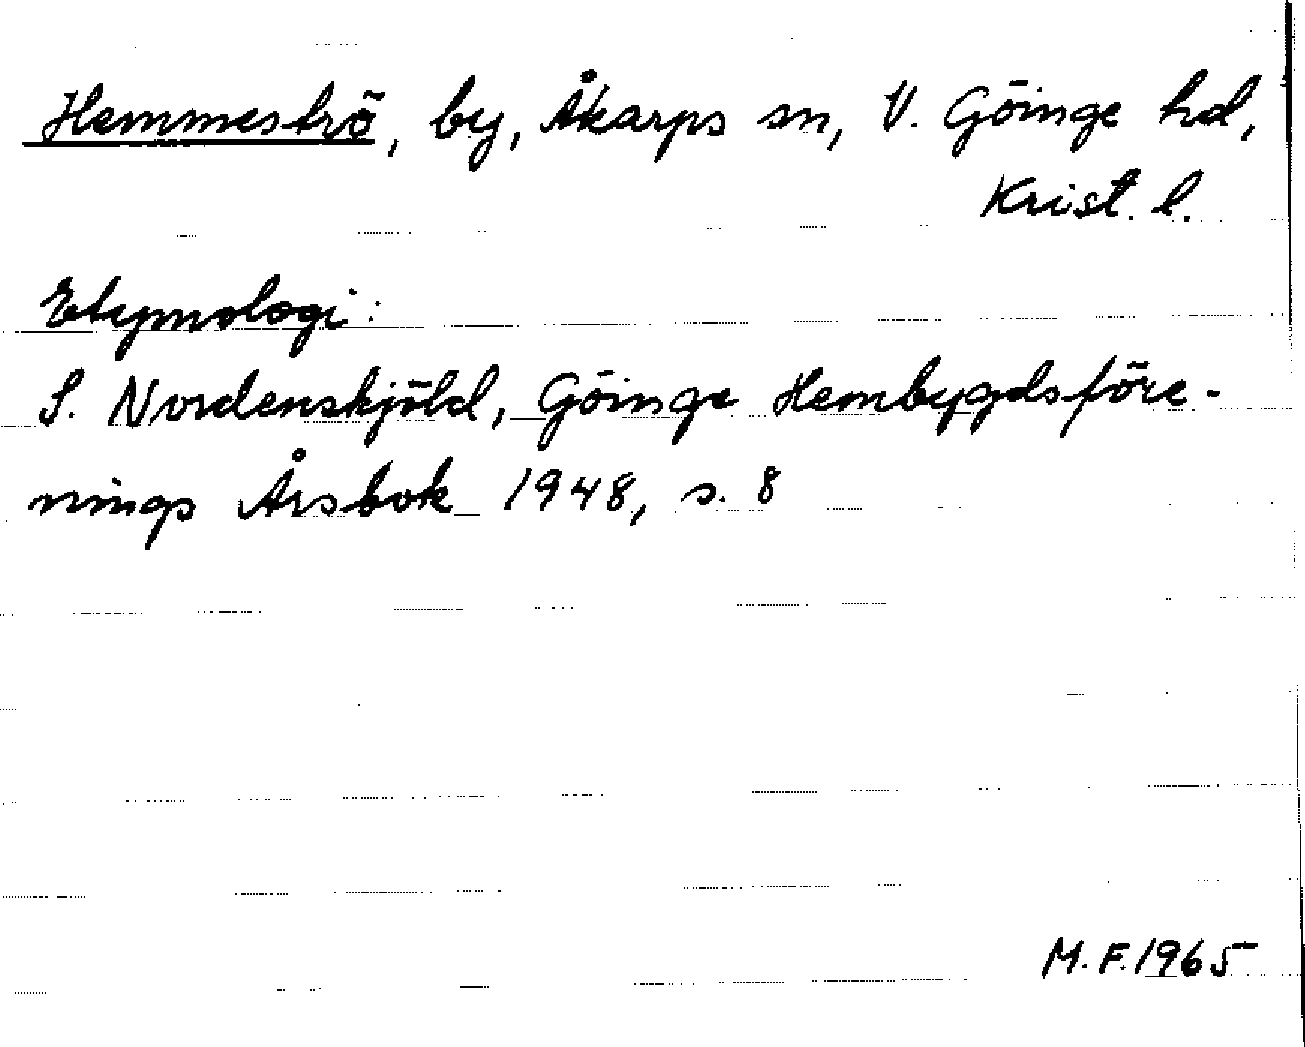 Hemmeströ, by, Åkarps sn, V. Göinge hd,
Krist. l.
Etymologi:
S. Nordenskjöld, Göinge Hembygdsföre-
nings Årsbok 1948, s. 8
M.F. 1965